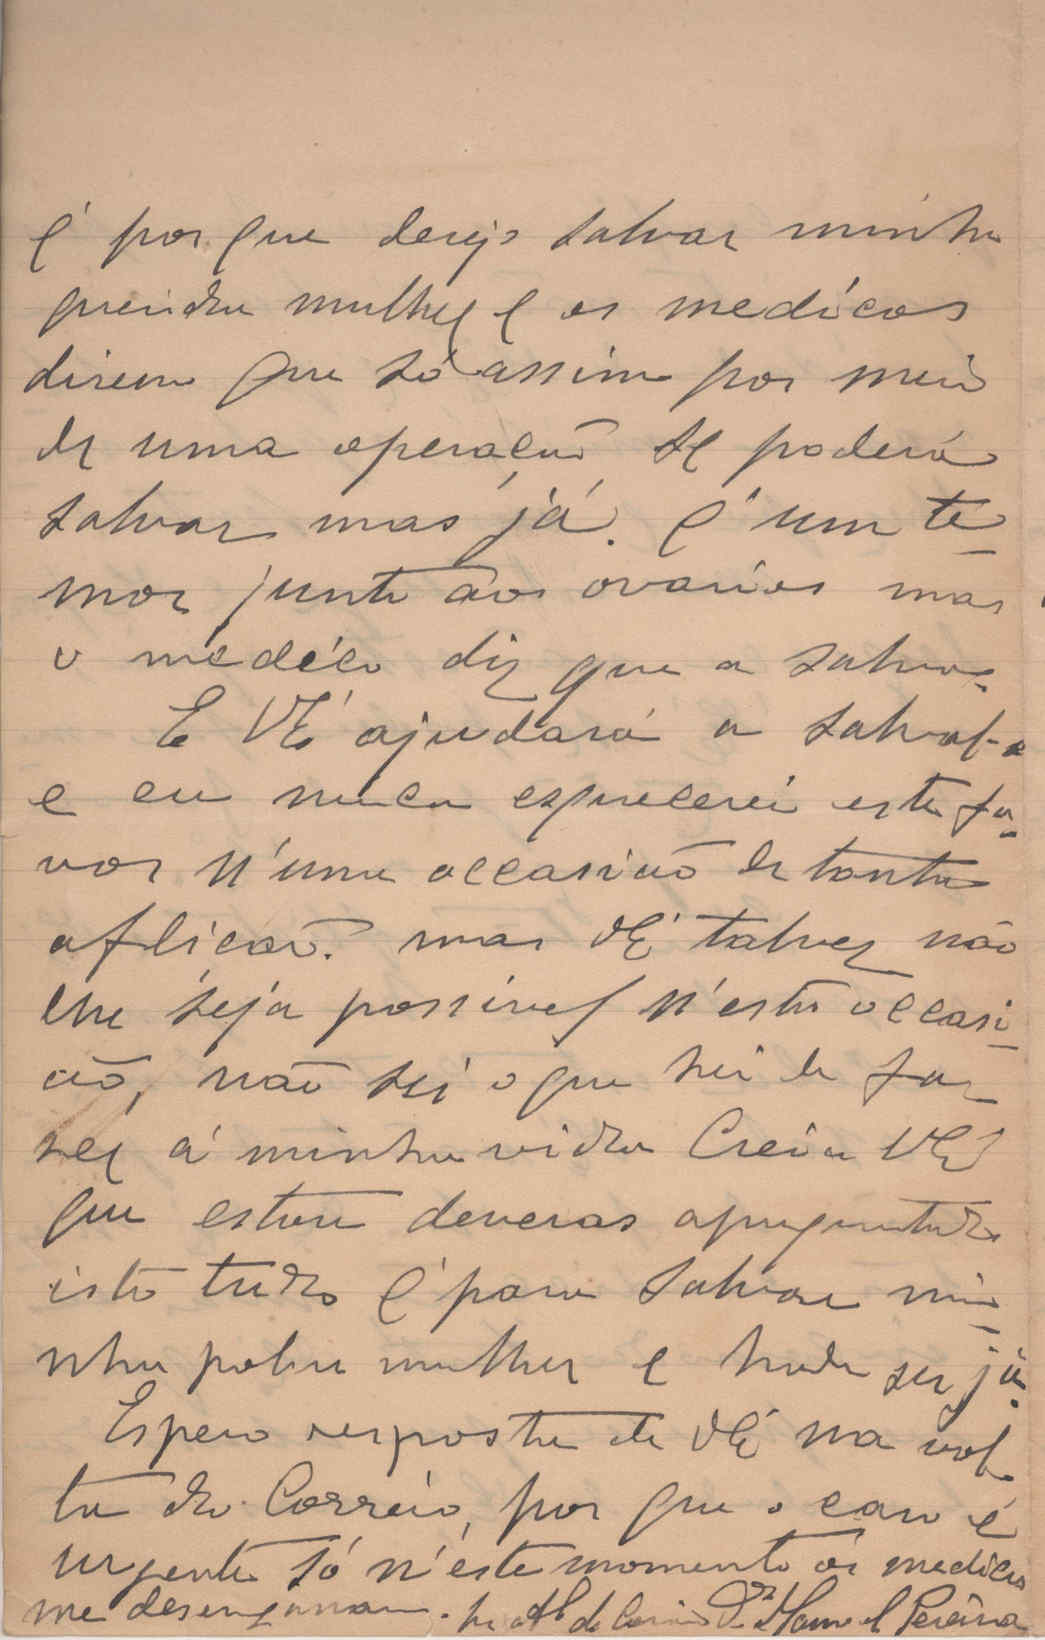 é por que desejo salvar minha
querida mulher e os medicos
disem que só assim por meio
de uma operação se poderá
salvar mas já. É um te
mor junto aos ovarios mas
o medico diz que a salva.
E VEª ajudará a salval-a
e eu nunca esquecerei este fa-
vor n'uma occasião de tanta
aflicão. mas VEª talvez não
lhe seja possivel n'esta occasi-
ão, não sei o que hei de fa
ser á minha vida Creia VEª
que estou deveras apoquentado
isto tudo é para salvar mi-
nha pobre mulher e hade ser já.
Espero resposta de VEª na vol-
ta do Correio, por que o caso é
urgente só n'este momento os medicos
me desenganaram. Manoel Pereira